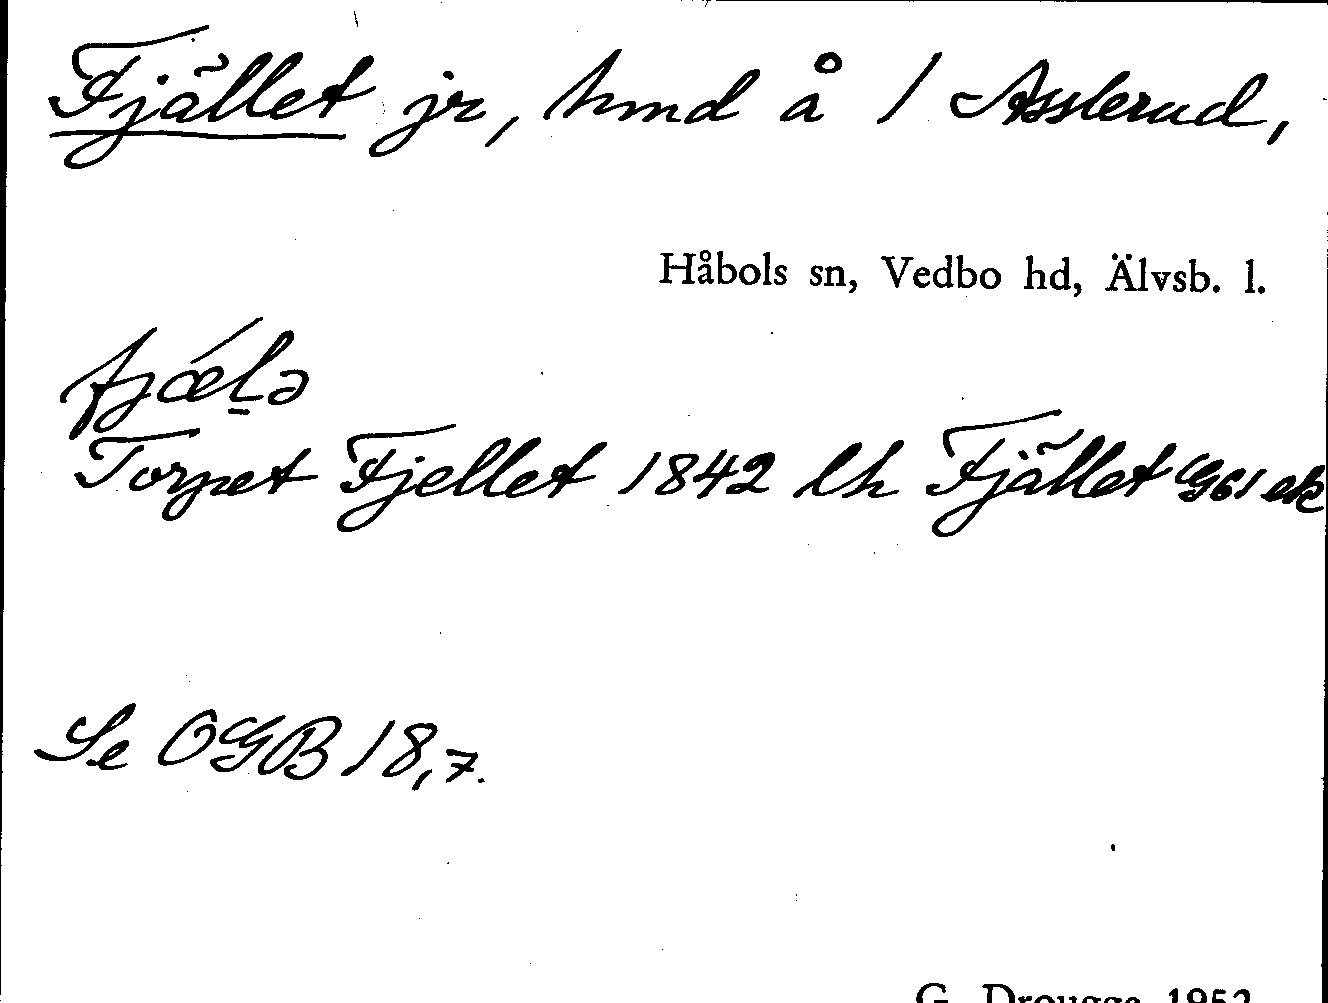 Fjället jr, hmd å 1 Asslerud,
Håbols sn, Vedbo hd, Älvsb. l.
fjæ̀l̠ə
Torpet Fjellet 1842 lh Fjället G61 ek
Se OGB 18,7.
G. Drougge 1952